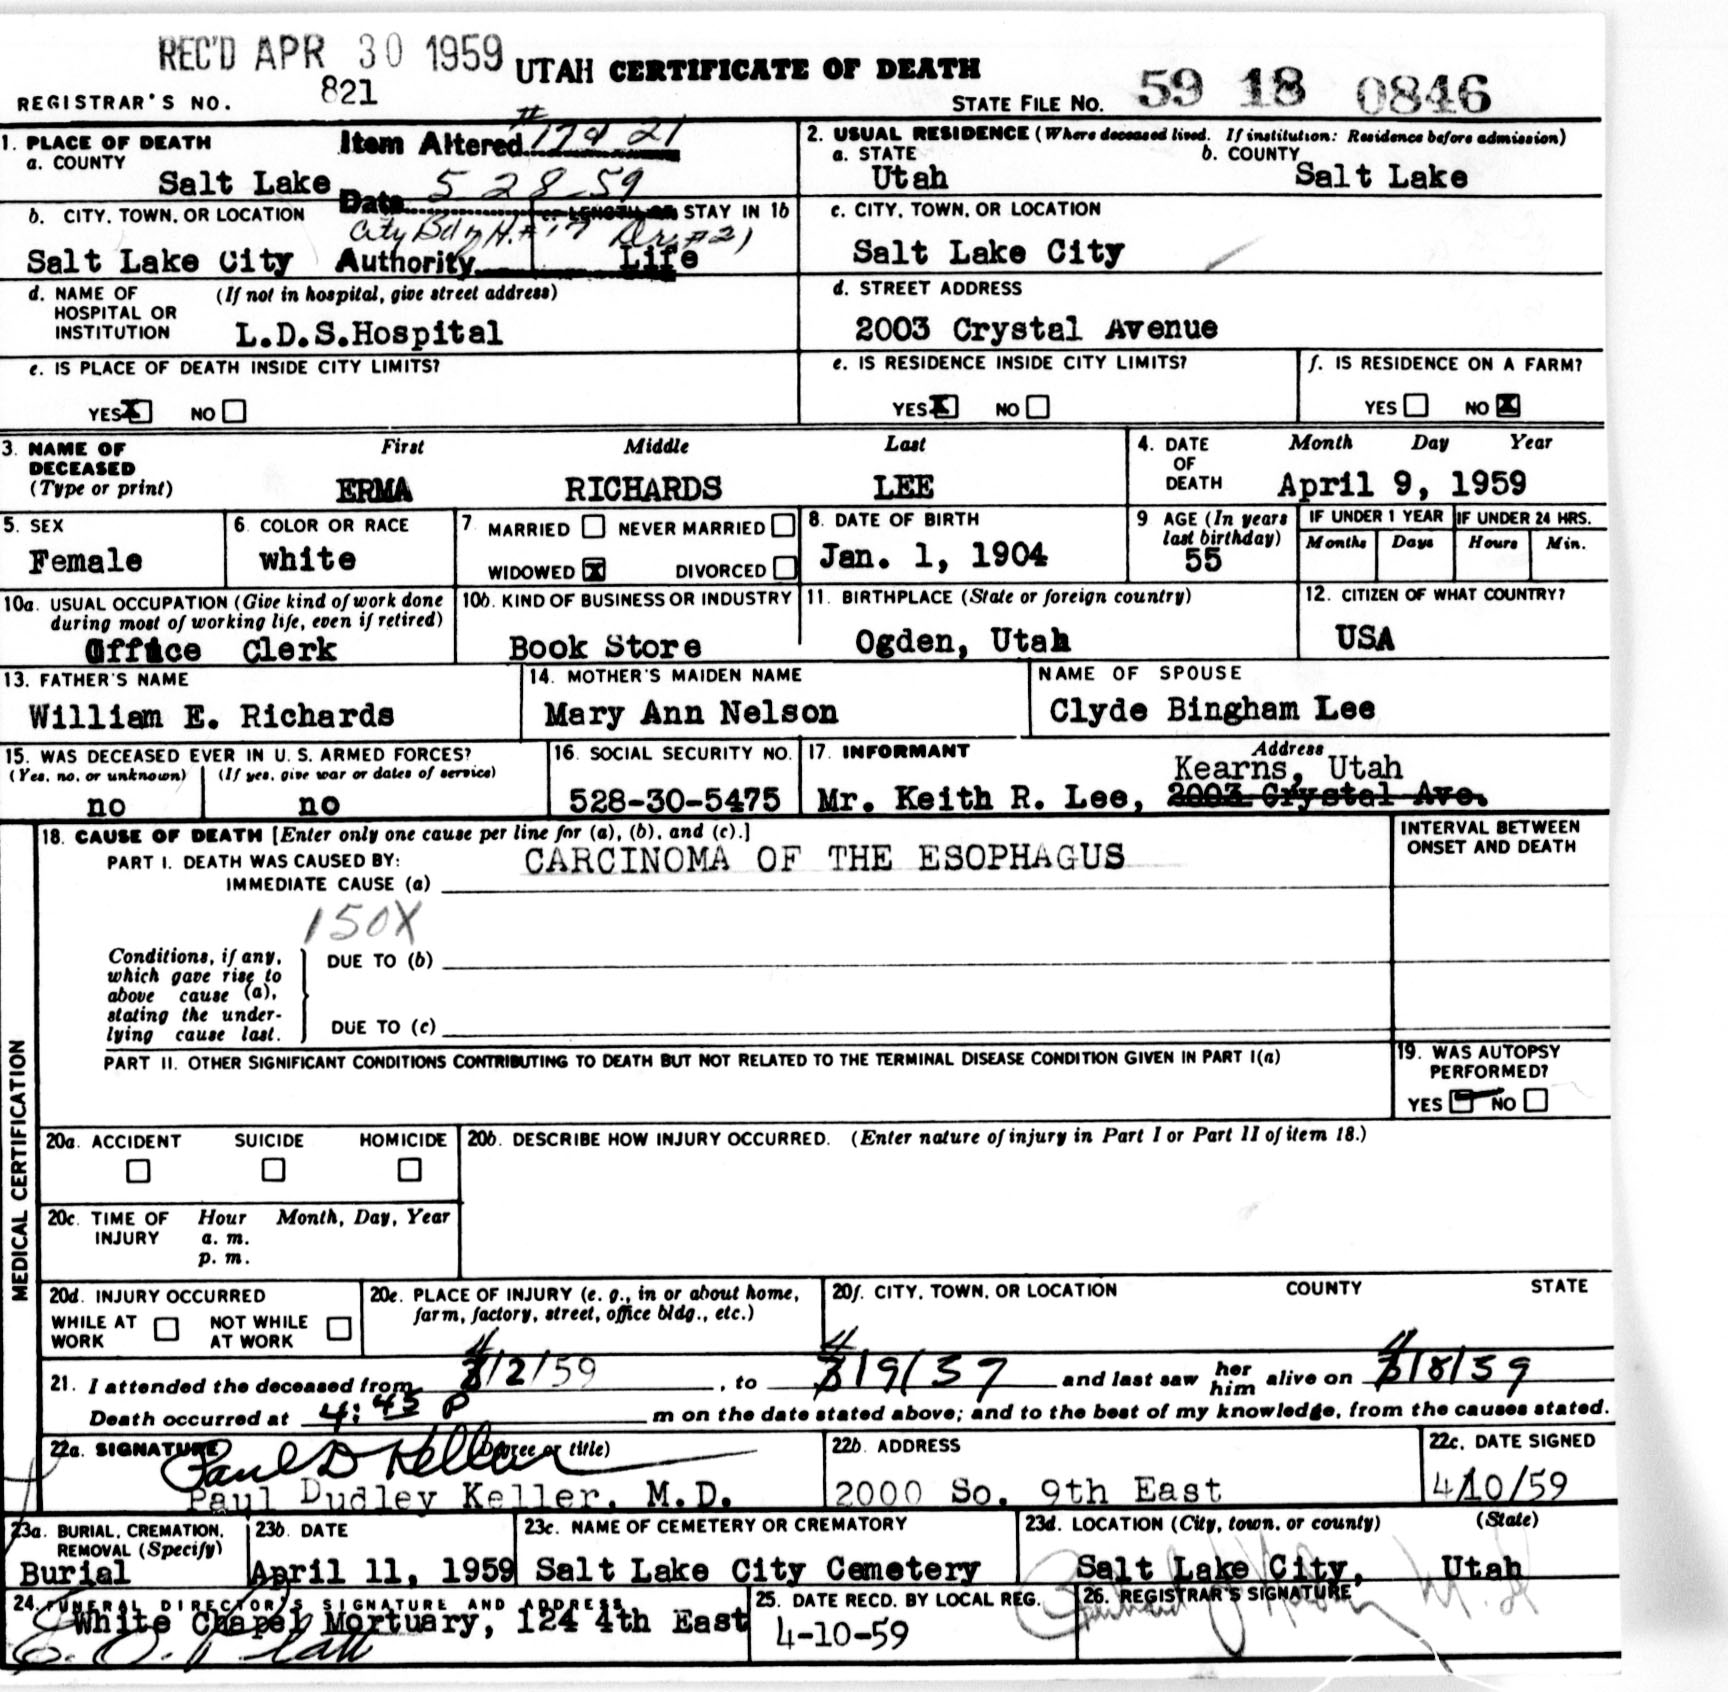 REC'D APR 30 1959 UTAH CERTIFICATE OF DEATH
REGISTRAR'S NO. 821 STATE FILE NO. 59 18 0846
1. PLACE OF DEATH
a. COUNTY
Salt Lake
Item Altered # 17 & 21
Date 5 28 59
City Bd of H. #17 Dr. #21
Authority
2. USUAL RESIDENCE (Where deceased lived. If institution: Residence before admission)
a. STATE b. COUNTY
Utah Salt Lake
b. CITY, TOWN, OR LOCATION c. LENGTH OF STAY IN 1b
Salt Lake City Life
c. CITY, TOWN, OR LOCATION
Salt Lake City
d. NAME OF HOSPITAL OR INSTITUTION (If not in hospital, give street address)
L.D.S.Hospital
d. STREET ADDRESS
2003 Crystal Avenue
e. IS PLACE OF DEATH INSIDE CITY LIMITS?
YES X NO
e. IS RESIDENCE INSIDE CITY LIMITS?
YES X NO
f. IS RESIDENCE ON A FARM?
YES NO X
3. NAME OF DECEASED (Type or print) First Middle Last
ERMA RICHARDS LEE
4. DATE OF DEATH Month Day Year
April 9, 1959
5. SEX
Female
6. COLOR OR RACE
white
7 MARRIED NEVER MARRIED
WIDOWED X DIVORCED
8. DATE OF BIRTH
Jan. 1, 1904
9 AGE (In years last birthday)
55
IF UNDER 1 YEAR IF UNDER 24 HRS.
Months Days Hours Min.
10a. USUAL OCCUPATION (Give kind of work done during most of working life, even if retired)
Office Clerk
10b. KIND OF BUSINESS OR INDUSTRY
Book Store
11. BIRTHPLACE (State or foreign country)
Ogden, Utah
12. CITIZEN OF WHAT COUNTRY?
USA
13. FATHER'S NAME
William E. Richards
14. MOTHER'S MAIDEN NAME
Mary Ann Nelson
NAME OF SPOUSE
Clyde Bingham Lee
15. WAS DECEASED EVER IN U. S. ARMED FORCES?
(Yes, no, or unknown) (If yes, give war or dates of service)
no no
16. SOCIAL SECURITY NO.
528-30-5475
17. INFORMANT Address
Kearns, Utah
Mr. Keith R. Lee, 2003 Crystal Ave.
18. CAUSE OF DEATH [Enter only one cause per line for (a), (b), and (c).]
PART I. DEATH WAS CAUSED BY:
IMMEDIATE CAUSE (a) CARCINOMA OF THE ESOPHAGUS
150X
Conditions, if any, which gave rise to above cause (a), stating the underlying cause last.
DUE TO (b)
DUE TO (c)
INTERVAL BETWEEN ONSET AND DEATH
PART II. OTHER SIGNIFICANT CONDITIONS CONTRIBUTING TO DEATH BUT NOT RELATED TO THE TERMINAL DISEASE CONDITION GIVEN IN PART I(a)
19. WAS AUTOPSY PERFORMED?
YES NO
MEDICAL CERTIFICATION
20a. ACCIDENT SUICIDE HOMICIDE
20b. DESCRIBE HOW INJURY OCCURRED. (Enter nature of injury in Part I or Part II of item 18.)
20c. TIME OF INJURY Hour Month, Day, Year
a. m.
p. m.
20d. INJURY OCCURRED
WHILE AT WORK NOT WHILE AT WORK
20e. PLACE OF INJURY (e. g., in or about home, farm, factory, street, office bldg., etc.)
20f. CITY, TOWN, OR LOCATION COUNTY STATE
21. I attended the deceased from 4/2/59, to 4/9/59 and last saw her him alive on 4/8/59
Death occurred at 4:45 P m on the date stated above; and to the best of my knowledge, from the causes stated.
22a. SIGNATURE (Degree or title)
Paul D Keller
Paul Dudley Keller, M.D.
22b. ADDRESS
2000 So. 9th East
22c. DATE SIGNED
4/10/59
23a. BURIAL, CREMATION, REMOVAL (Specify)
Burial
23b. DATE
April 11, 1959
23c. NAME OF CEMETERY OR CREMATORY
Salt Lake City Cemetery
23d. LOCATION (City, town, or county) (State)
Salt Lake City, Utah
24. FUNERAL DIRECTOR'S SIGNATURE AND ADDRESS
White Chapel Mortuary, 124 4th East
25. DATE RECD. BY LOCAL REG.
4-10-59
26. REGISTRAR'S SIGNATURE